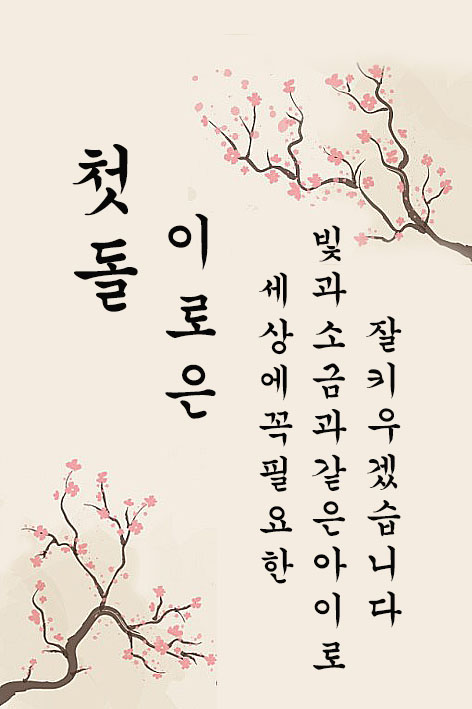 첫돌
이로은
세상에꼭필요한
빛과소금과같은아이로
잘키우겠습니다